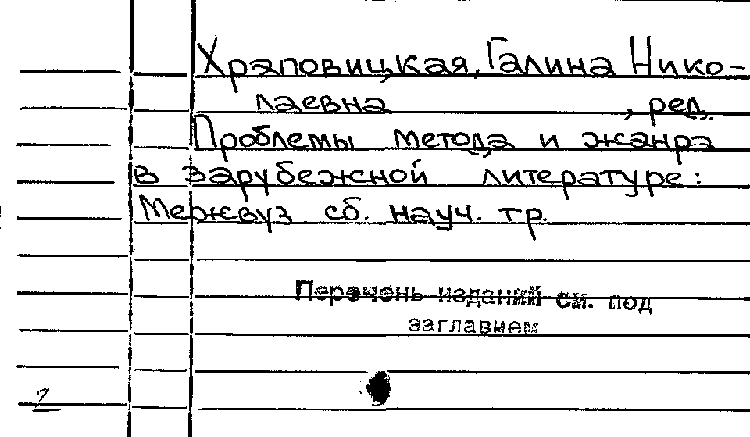 Храповицкая, Галина Нико-
лаевна , ред.
Проблемы метода и жанра
в зарубежной литературе:
Межвуз. сб. науч. тр.
Перечень изданий см. под
заглавием
2